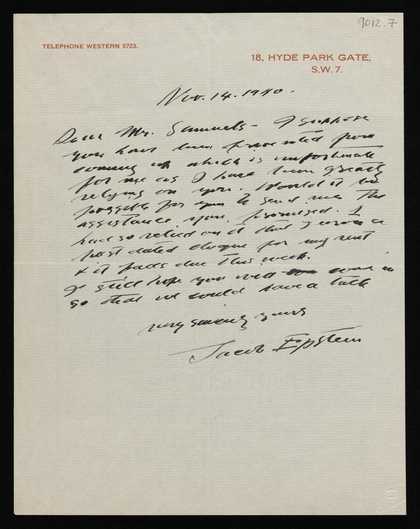 9012.7
TELEPHONE WESTERN 2723.
18, HYDE PARK GATE,
S.W. 7.
Nov. 14. 1940.
Dear Mr. Samuels - I suppose
you have been prevented from
coming up which is unfortunate
for me as I have been greatly
relying on you. Would it be
possible for you to send me the
assistance you promised. I
had so relied on it that I wrote a
post dated cheque for my rent
& it falls due this week.
I still hope you will come in
so that we could have a talk
very sincerely yours
Jacob Epstein